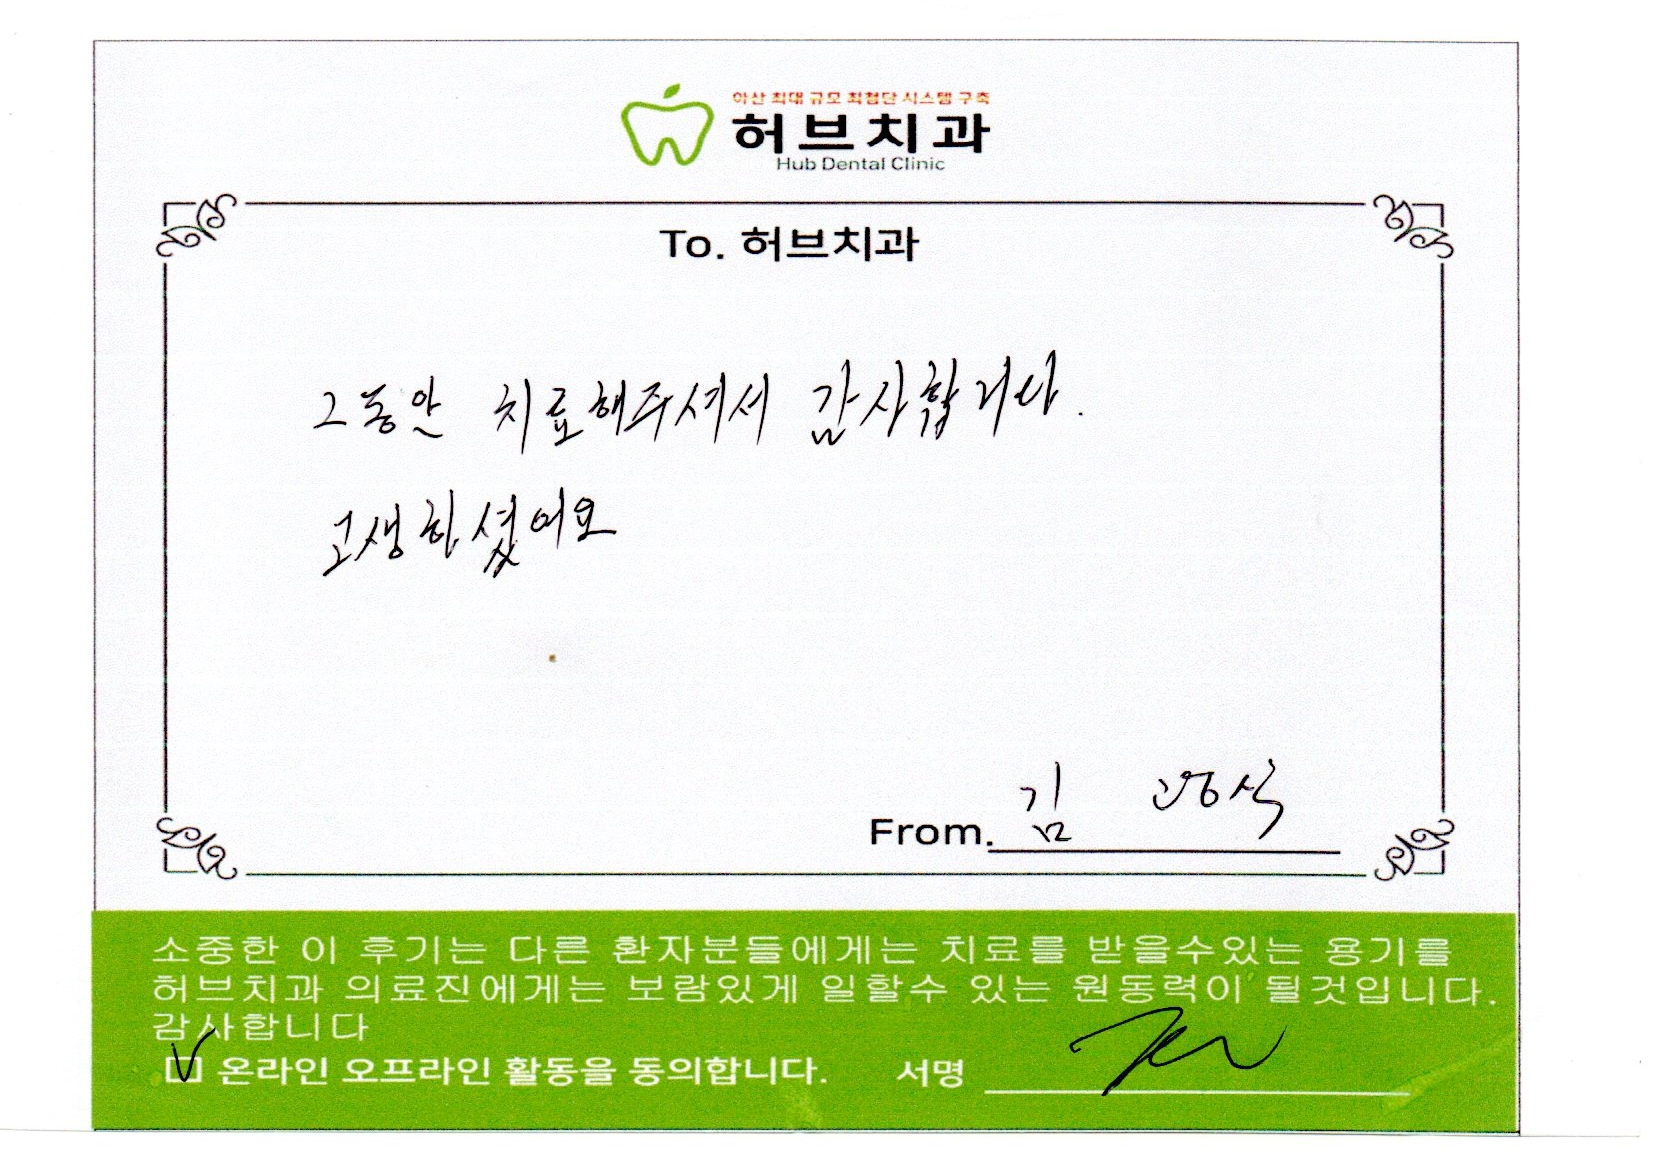 아산 최대 규모 최첨단 시스템 구축
허브치과
Hub Dental Clinic
To. 허브치과
그동안 치료해주셔서 감사합니다.
고생하셨어요
From. 김 광식
소중한 이 후기는 다른 환자분들에게는 치료를 받을수있는 용기를
허브치과 의료진에게는 보람있게 일할수 있는 원동력이 될것입니다.
감사합니다
온라인 오프라인 활동을 동의합니다. 서명